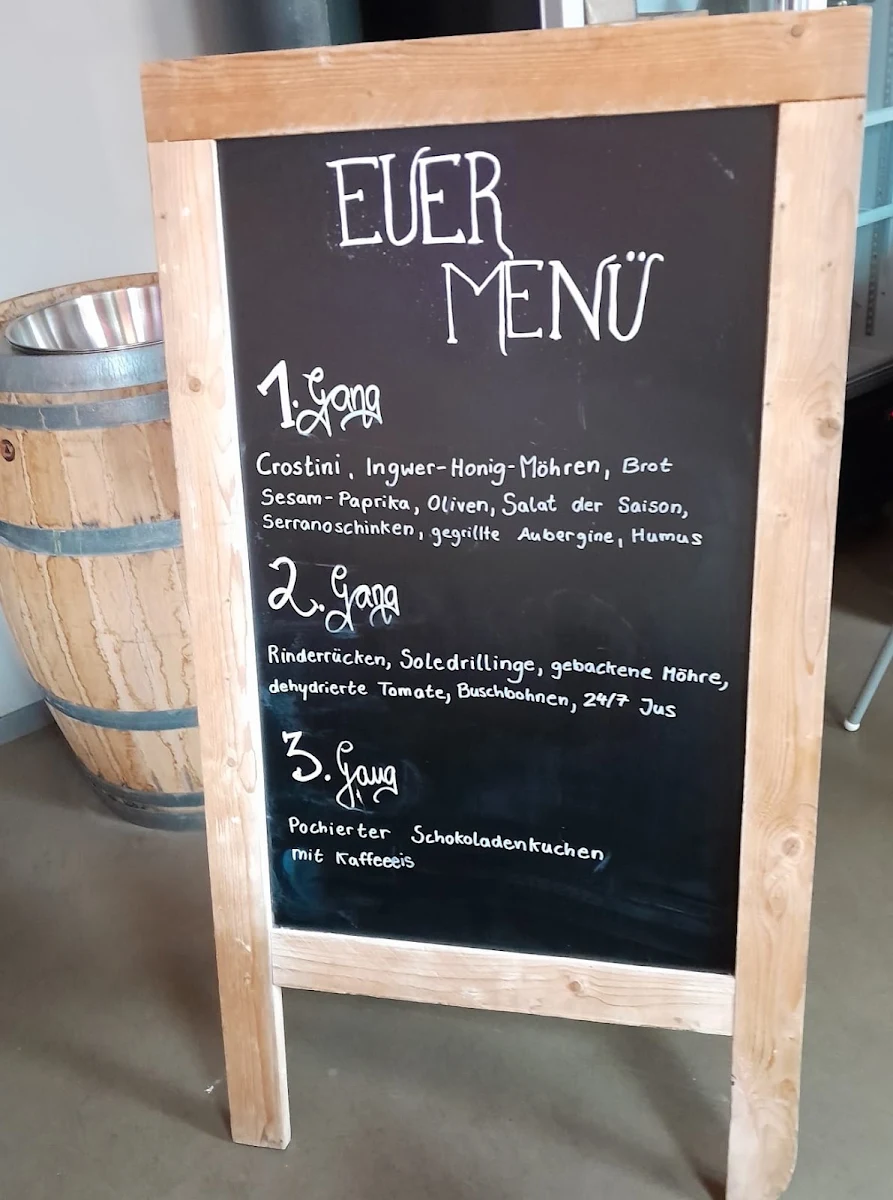 EUER
MENÜ
1. Gang
Crostini, Ingwer-Honig-Möhren, Brot
Sesam-Paprika, Oliven, Salat der Saison,
Serranoschinken, gegrillte Aubergine, Humus
2. Gang
Rinderrücken, Soledrillinge, gebackene Möhre,
dehydrierte Tomate, Buschbohnen, 24/7 Jus
3. Gang
Pochierter Schokoladenkuchen
mit Kaffeeeis